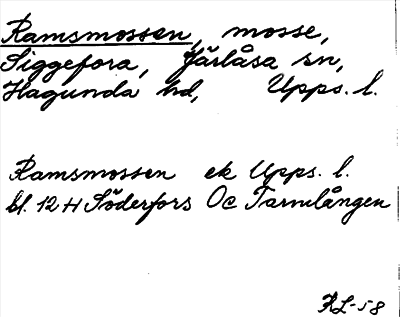 Ramsmossen, mosse,
Siggefora, Järlåsa sn,
Hagunda hd, Upps. l.
Ramsmossen ek Upps. l.
bl. 12 H Söderfors Oc Tarmlången
RL-58